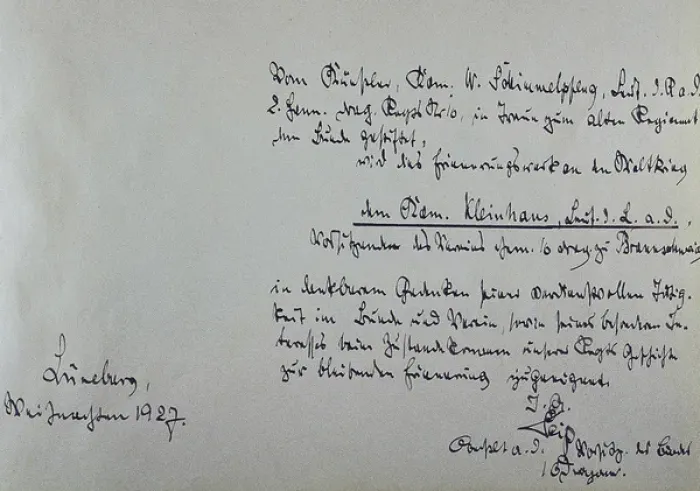 Vom Künstler, Kam. W. Schimmelpfeng, Leut. d. R. a. D.
2. Hann. Drag. Regts Nr 16, in Treue zum alten Regiment
dem Bunde gestiftet,
wird das Erinnerungswerk an den Weltkrieg
dem Kam. Kleinhans, Leut. d. L. a. D.,
Vorsitzender des Vereins ehem. 16 Drag. zu Braunschweig
in dankbarem Gedenken seiner verdienstvollen Tätig-
keit im Bunde und Verein, sowie seines besonderen In-
teresses beim Zustandekommen unserer Regts Geschichte
zur bleibenden Erinnerung zugeeignet.
Lüneburg,
Weihnachten 1927.
Oberstlt a. D. Vorsitz. des Bundes
16 Dragoner.